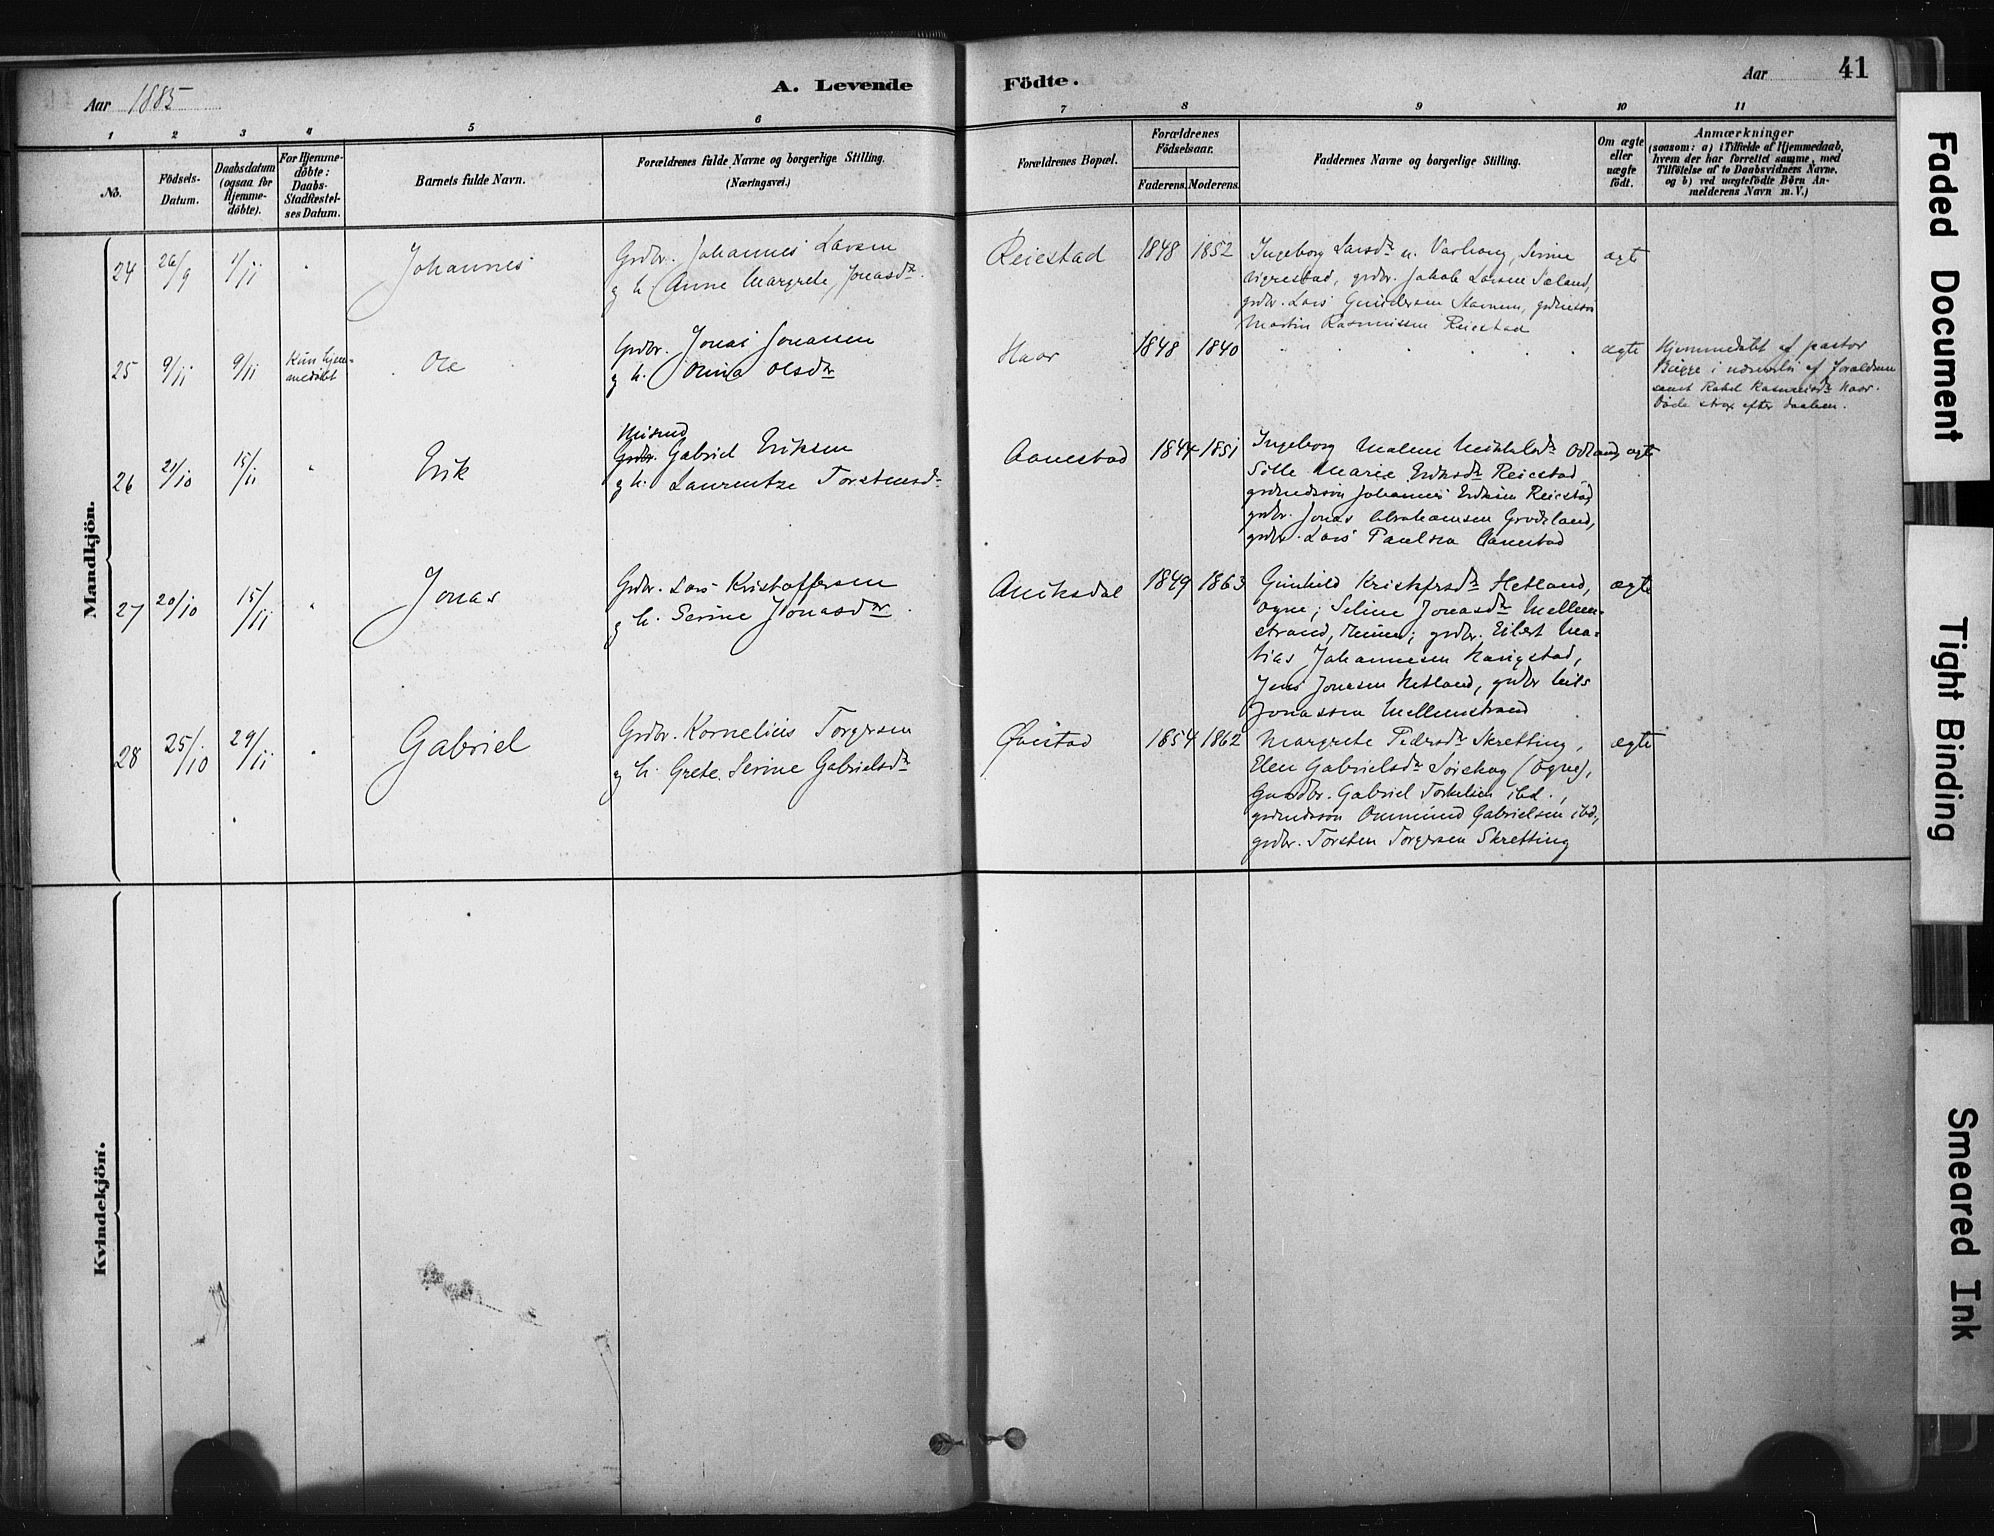 Aar 1885
A. Levende
Födte.
Aar
41
1
2
3
4
5
6
7
8
9
10
11
No.
Födsels-
Datum.
Daabsdatum
(ogsaa for
Hjemme-
döbte).
For Hjemme-
döbte:
Daabs-
Stadfæstel-
ses Datum.
Barnets fulde Navn.
Forældrenes fulde Navne og borgerlige Stilling.
(Næringsvei.)
Forældrenes Bopæl.
Forældrenes
Födselsaar.
Faderens.
Moderens.
Faddernes Navne og borgerlige Stilling.
Om ægte
eller
uægte
födt.
Anmærkninger
(saasom: a) i Tilfælde af Hjemmedaab,
hvem der har forrettet samme, med
Tilföielse af to Daabsvidners Navne,
og b) ved uægtefödte Börn An-
melderens Navn m. V.)
Mandkjön.
24
26/9
1/11
Johannes
Grdbr. Johannes Larsen
g h. Anne Margrete Jonasdr.
Reiestad
1848
1852
Ingeborg Larsdr n. Varhaug, Serine
grdbr. Jakob Larsen
grdbr. Lars Gundersen
Martin Rasmussen Reiestad
ægte
25
9/11
9/11
Kun hjem-
medöbt
Ole
Grdbr. Jonas Jonassen
g h. Olsdr
Haar
1848
1840
ægte
Hjemmedöbt af pastor
i nærværelse af Forældrene
samt Rakel Rasmusdr Haar.
Döde strax efter daaben.
26
21/10
15/11
Erik
Grdbr. Gabriel Eriksen
g h. Laurentze Torstensdr
Aanestad
1844
1851
Ingeborg Malene Mikkelsdr Odland,
Marie Eriksdr Reiestad
grdmdssön Johannes Eriksen Reiestad
grdbr. Jonas Abrahamsen Grödeland,
grdbr. Lars Paulsen Aanestad
ægte
27
20/10
15/11
Jonas
Grdbr. Lars Kristoffersen
g h. Serine Jonasdr.
Aniksdal
1849
1863
Gunhild Kristofersdr Hetland,
Ogne; Seline Jonasdr Mellem-
strand, grdbr. Eilert Ma-
tias Johannesen
Jens Jonassen Hetland, grdbr Nils
Jonassen Mellemstrand
ægte
28
25/10
29/11
Gabriel
Grdbr. Kornelius Torgersen
g h. Grete Serine Gabrielsdr
1854
1862
Margrete Pedersdr Skretting,
Elen Gabrielsdr Sörskog (Ogne),
Gabriel Torkelsen ibd.,
grdmdssön Ommund Gabrielsen ibd,
grdbr. Torsten Torgersen Skretting
ægte
Kvindekjön.
Faded Document
Tight Binding
Smeared Ink